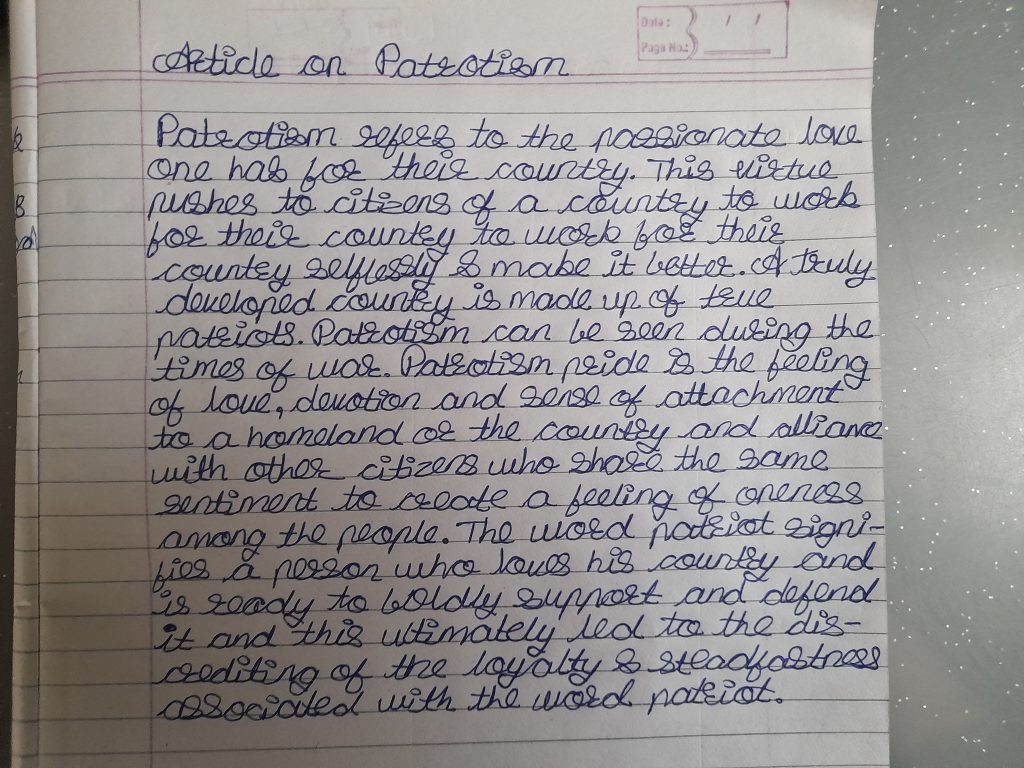 Date: / /
Page No.:
Article on Patrotism
Patrotism refers to the passionate love
one has for their country. This virtue
pushes to citizens of a country to work
for their country to work for their
country selflessly & make it better. A truly
developed country is made up of true
patriots. Patrotism can be seen during the
times of war. Patrotism pride is the feeling
of love, devotion and sense of attachment
to a homeland or the country and alliance
with other citizens who share the same
sentiment to create a feeling of oneness
among the people. The word patriot signi-
fies a person who loves his country and
is ready to boldly support and defend
it and this ultimately led to the dis-
crediting of the loyalty & steadfastness
associated with the word patriot.